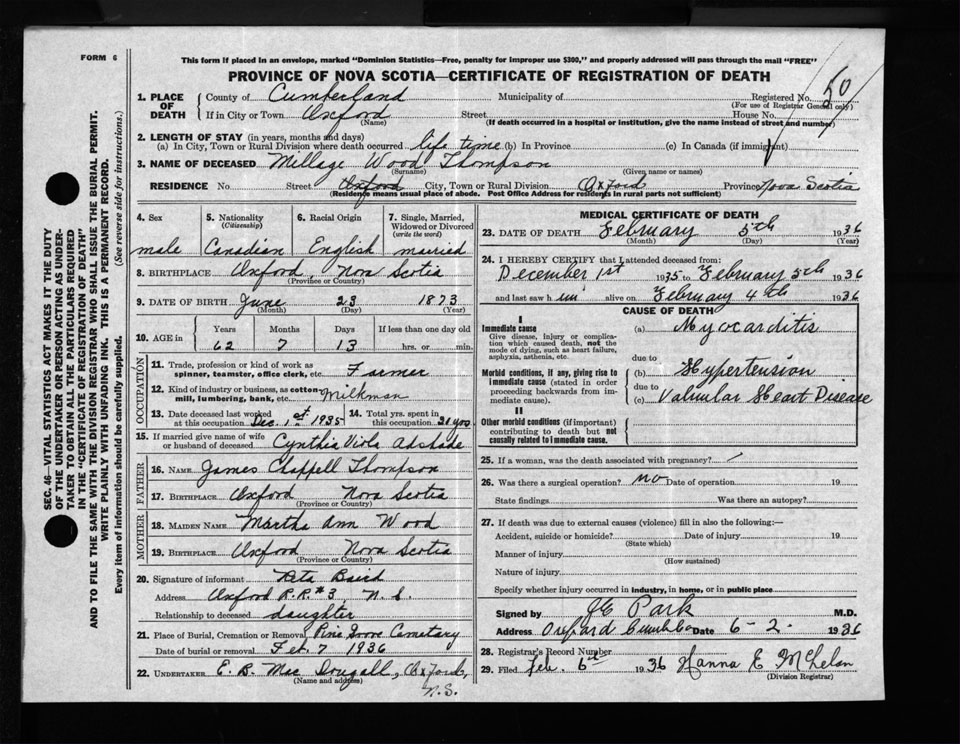 FORM 6
This form if placed in an envelope, marked "Dominion Statistics—Free, penalty for improper use $300," and properly addressed will pass through the mail "FREE"
PROVINCE OF NOVA SCOTIA—CERTIFICATE OF REGISTRATION OF DEATH
SEC. 46—VITAL STATISTICS ACT MAKES IT THE DUTY
OF THE UNDERTAKER OR PERSON ACTING AS UNDER-
TAKER TO OBTAIN ALL THE PARTICULARS REQUIRED
IN THE "CERTIFICATE OF REGISTRATION OF DEATH"
AND TO FILE THE SAME WITH THE DIVISION REGISTRAR WHO SHALL ISSUE THE BURIAL PERMIT.
WRITE PLAINLY WITH UNFADING INK. THIS IS A PERMANENT RECORD.
Every item of information should be carefully supplied. (See reverse side for instructions.)
1. PLACE OF DEATH County of Cumberland Municipality of Registered No. 50
(For use of Registrar General only)
If in City or Town Oxford Street House No.
(Name) (If death occurred in a hospital or institution, give the name instead of street and number)
2. LENGTH OF STAY (in years, months and days)
(a) In City, Town or Rural Division where death occurred life time (b) In Province (c) In Canada (if immigrant)
3. NAME OF DECEASED Millage Wood Thompson
(Surname) (Given name or names)
RESIDENCE No. Street Oxford City, Town or Rural Division Oxford Province Nova Scotia
(Residence means usual place of abode. Post Office Address for residents in rural parts not sufficient)
4. Sex 5. Nationality (Citizenship) 6. Racial Origin 7. Single, Married, Widowed or Divorced (write the word)
male Canadian English married
8. BIRTHPLACE Oxford, Nova Scotia
(Province or Country)
9. DATE OF BIRTH June 23 1873
(Month) (Day) (Year)
10. AGE in Years Months Days If less than one day old
62 7 13 hrs. or min.
OCCUPATION
11. Trade, profession or kind of work as spinner, teamster, office clerk, etc. Farmer
12. Kind of industry or business, as cotton-mill, lumbering, bank, etc. Milkman
13. Date deceased last worked at this occupation Dec. 1st 1935 14. Total yrs. spent in this occupation 30 yrs.
15. If married give name of wife or husband of deceased Cynthia Viola Adshade
FATHER
16. NAME James Chappell Thompson
17. BIRTHPLACE Oxford Nova Scotia
(Province or Country)
MOTHER
18. MAIDEN NAME Martha Ann Wood
19. BIRTHPLACE Oxford Nova Scotia
(Province or Country)
20. Signature of informant Reta Baird
Address Oxford R.R. #3, N.S.
Relationship to deceased daughter
21. Place of Burial, Cremation or Removal Pine Grove Cemetary
Date of burial or removal Feb. 7 1936
22. UNDERTAKER E. B. Mac Dougall, Oxford, N.S.
(Name and address)
MEDICAL CERTIFICATE OF DEATH
23. DATE OF DEATH February 5th 1936
(Month) (Day) (Year)
24. I HEREBY CERTIFY that I attended deceased from:
December 1st 1935 to February 5th 1936
and last saw him alive on February 4th 1936
CAUSE OF DEATH
I
Immediate cause (a) Myocarditis
Give disease, injury or complication which caused death, not the mode of dying, such as heart failure, asphyxia, asthenia, etc.
due to
Morbid conditions, if any, giving rise to immediate cause (stated in order proceeding backwards from immediate cause). (b) Hypertension
due to
(c) Valvular Heart Disease
II
Other morbid conditions (if important) contributing to death but not causally related to immediate cause.
25. If a woman, was the death associated with pregnancy?
26. Was there a surgical operation? no Date of operation 19
State findings Was there an autopsy?
27. If death was due to external causes (violence) fill in also the following:—
Accident, suicide or homicide? Date of injury 19
(State which)
Manner of injury
(How sustained)
Nature of injury
Specify whether injury occurred in industry, in home, or in public place
Signed by Park M.D.
Address Date 6-2- 1936
28. Registrar's Record Number
29. Filed Feb. 6th 1936 Hanna E
(Division Registrar)